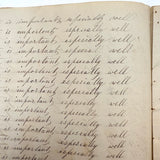 is important, especially well
is important, especially well
is important, especially well
is important, especially well
is important, especially well
is important, especially well
is important, especially well
is important, especially well
is important, especially well
is important, especially well
is important, especially well
is important, especially well
important, especially well